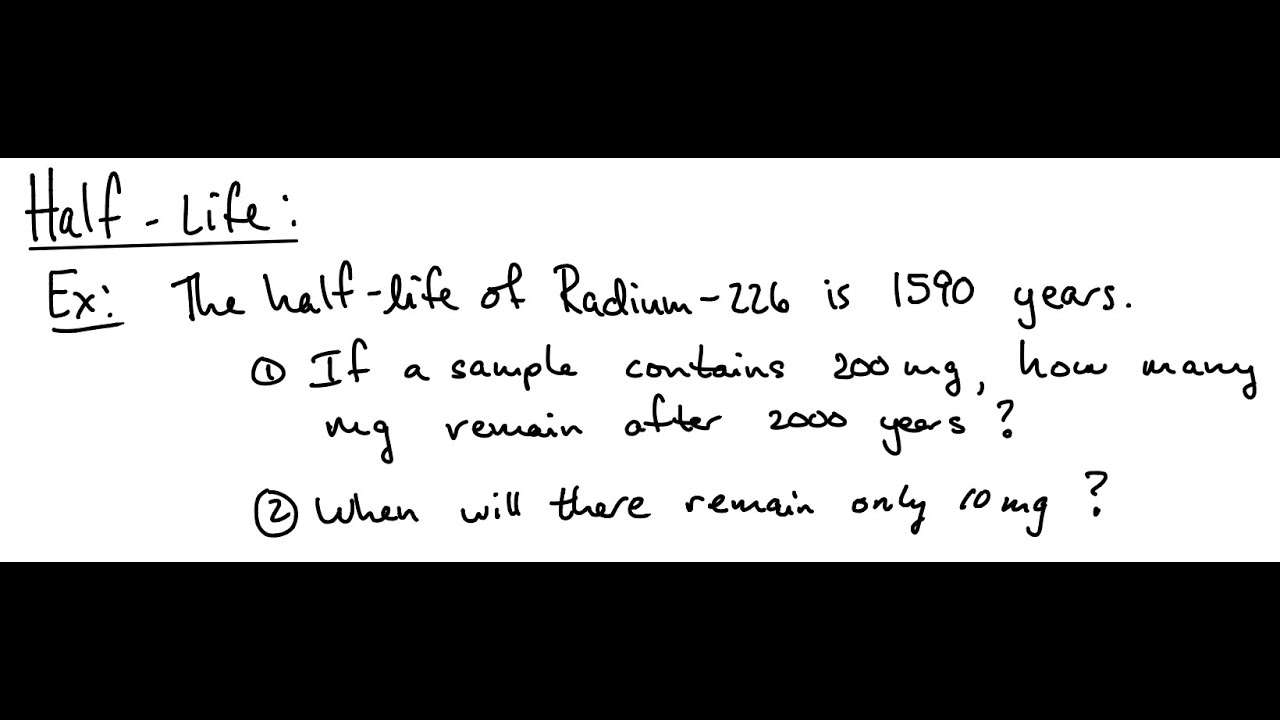 Half-Life:
Ex: The half-life of Radium-226 is 1590 years.
① If a sample contains 200 mg, how many
mg remain after 2000 years?
② When will there remain only 10 mg?